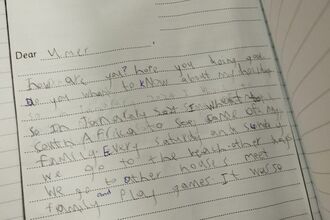 Dear Umer
how are you? hope you doing god
Do you whant to know about my holiday
so In January Saf I whent to
South Africa to See Some of my
family Every saturday and sunday
we go to the beach other days
We go to other houses meet
family and Play games It was so